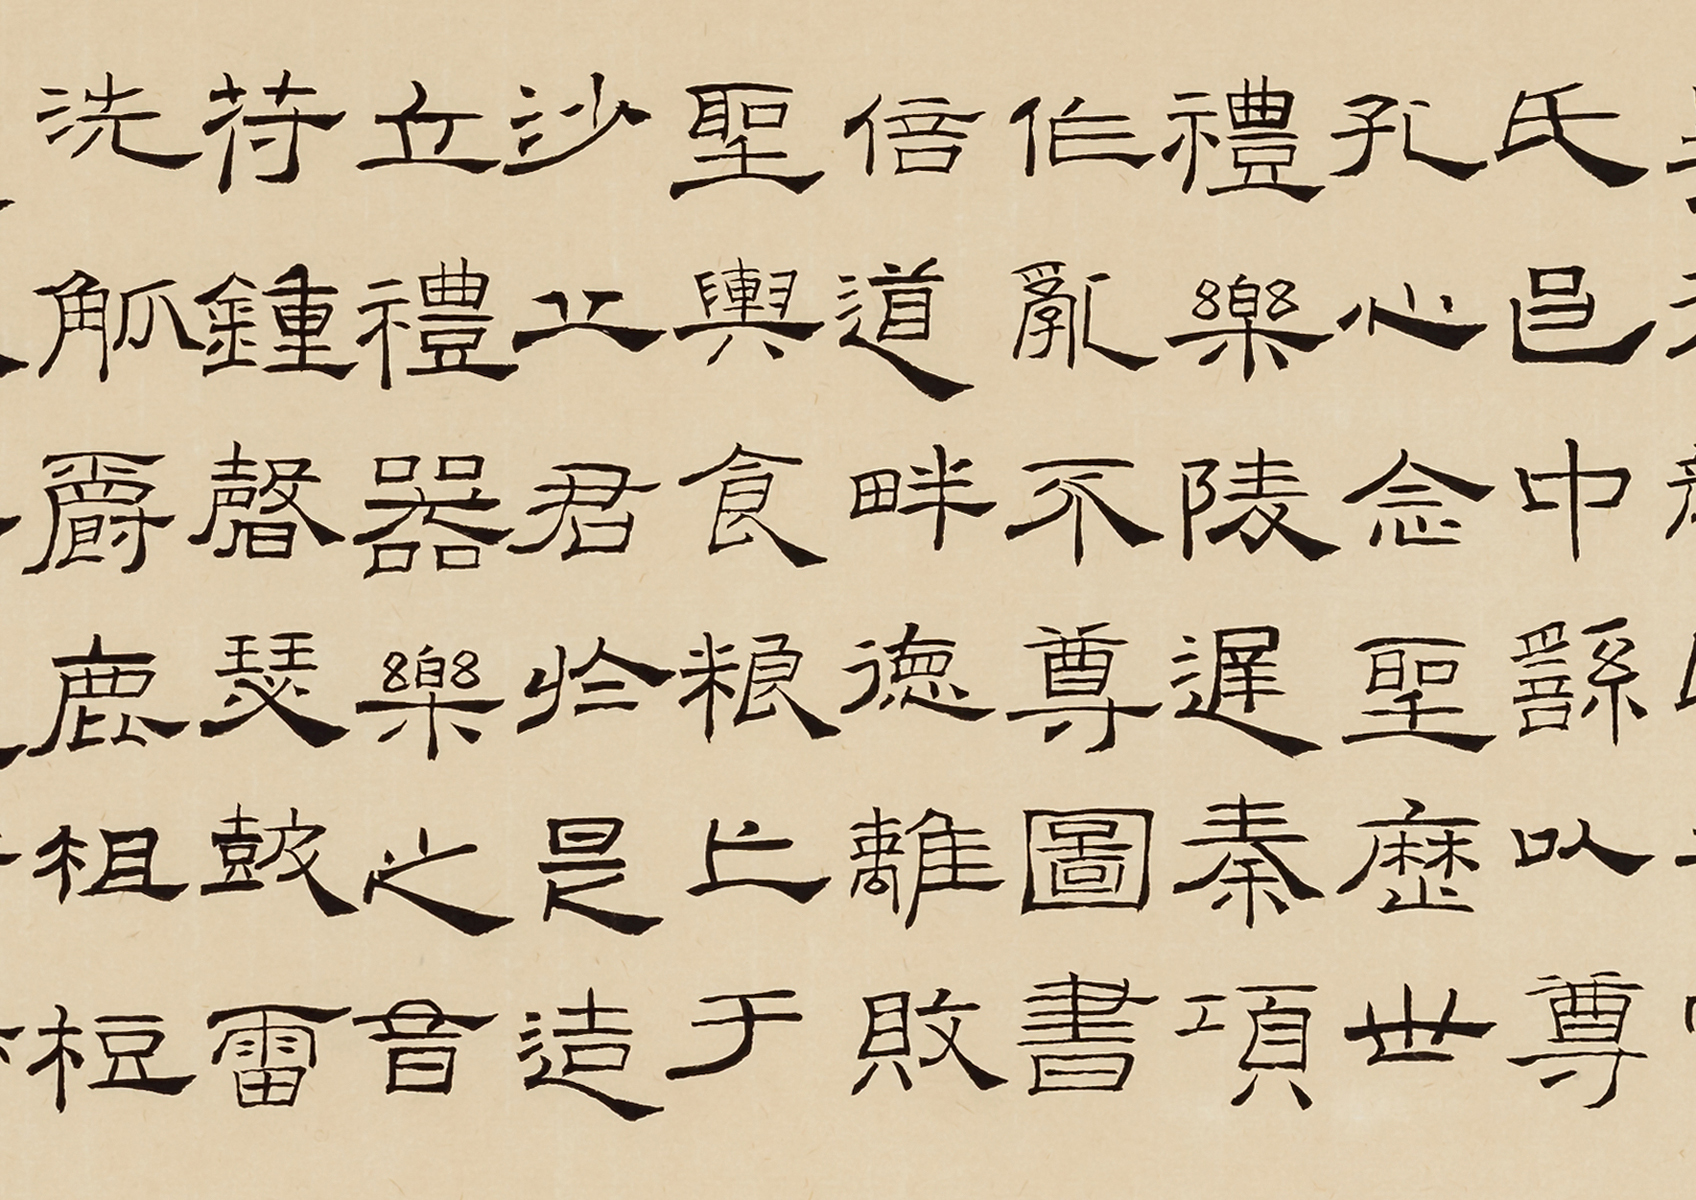 氏邑中繇以尊
孔心念聖歷世
禮樂陵遲秦項
作亂不尊圖書
倍道畔德離敗
聖輿食糧亡于
沙丘君於是造
立禮器樂之音
苻鍾磬瑟鼓雷
洗觚爵鹿柤梪